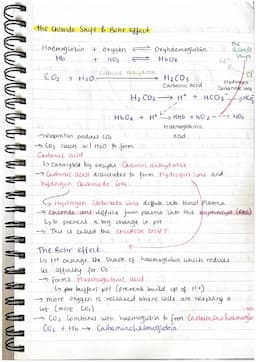 The Chloride Shift & Bohr effect:
Haemoglobin + oxygen ⇌ Oxyhaemoglobin
Hb + 4O₂ ⇌ HbO₈
The Chloride Shift
Carbonic Anhydrase
CO₂ + H₂O → H₂CO₃
Carbonic acid
Hydrogen Carbonate ions
H₂CO₃ → H⁺ + HCO₃⁻
HbO₈ + H⁺ → HHb + 4O₂ → 4O₂
Haemoglobinic acid
→ Respiration product CO₂
→ CO₂ reacts w/ H₂O to form
Carbonic acid
↳ Catalysed by enzyme Carbonic anhydrase
→ Carbonic acid dissociates to form Hydrogen ions and
hydrogen Carbonate ions.
↳ Hydrogen Carbonate ions diffuse into blood plasma
→ chloride ions diffuse from plasma into the erythrocyte (RBC)
↳ to prevent a big change in pH
→ This is called the CHLORIDE SHIFT.
The Bohr effect:
↳ H⁺ change the shape of haemoglobin which reduces
its affinity for O₂
→ forms Haemoglobinic acid
↳ pH buffers pH (prevent build up of H⁺)
→ more oxygen is released where cells are respiring a
lot (more CO₂)
→ CO₂ combines with haemoglobin to form Carbaminohaemoglobin
CO₂ + Hb → Carbaminohaemoglobin.